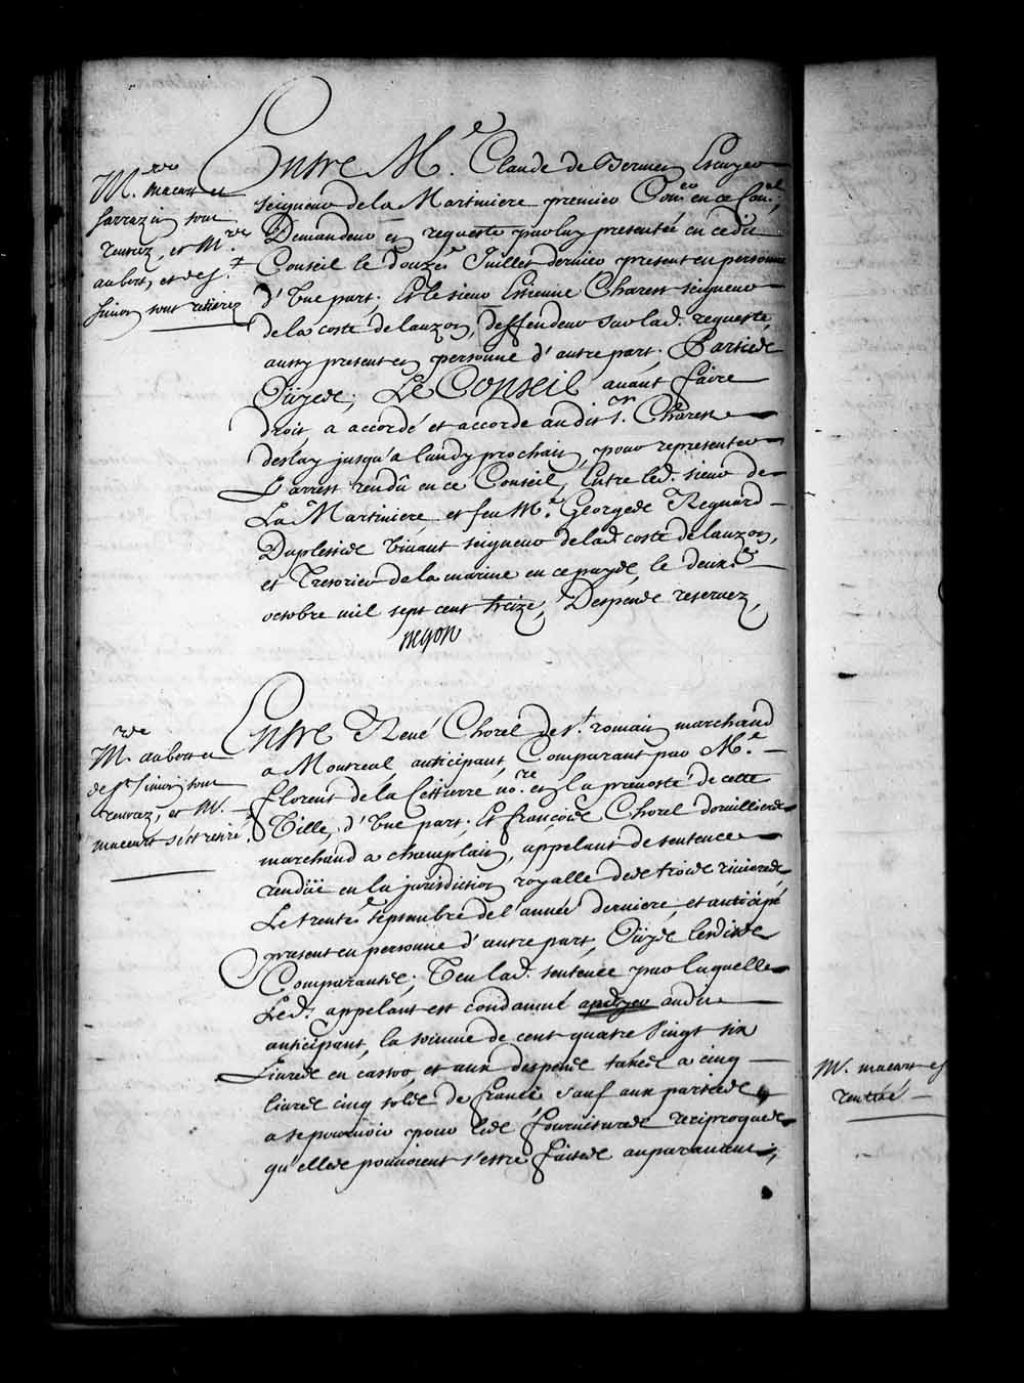 Mrs macart et
Sarrazin sont
rentrez, et Mrs
aubert, et de st
simon sont retirez
Entre Me. Claude de Bermen Escuyer
seigneur de la Martiniere premier Coner en ce Conel,
Demandeur en requeste par luy presentée en cedit
Conseil le douze Juillet dernier present en personne
d'Une part; Et le sieur Estienne Charest seigneur
de la coste de lauzon, deffendeur sur lad. requeste,
aussy present en personne d'autre part; Parties
Oüyes; Le Conseil avant faire
droit, a accordé et accorde audit sr. Charest
deslay jusqu'a lundy prochain, pour representer
L'arrest rendû en ce Conseil, Entre led. sieur de
La Martiniere et feu Me. Georges Regnard
Duplessis Vivant seigneur de lad. coste de lauzon,
et Tresorier de la marine en ce pays, le deuxe.
octobre mil sept cent treize, Despens reservez,
Begon
Mrs aubert et
de st simon sont
rentrez, et M.
macart s'est retiré.
Entre René Chorel de st. romain marchand
a Montreal, anticipant, Comparant par Me.
florent de la Cettierre nore. en la prevosté de cette
Ville, d'Une part; Et françois Chorel dorvilliers
marchand a champlain, appelant de sentence
rendüe en la jurisdiction royalle des trois rivieres
Le trente septembre de l'année derniere, et anticipé
present en personne d'autre part, Oüys lesdits
Comparants; Veu lad. sentence par laquelle
Led. appelant est condamné apayer audit
anticipant, la somme de cent quatre Vingt six
Livres en castor, et aux despens taxés a cinq
livres cinq sols de france sauf aux parties
a se pourvoir pour les fournitures reciproques
qu'elles pouvoient s'estre faites auparavant;
M. macart est
rentré